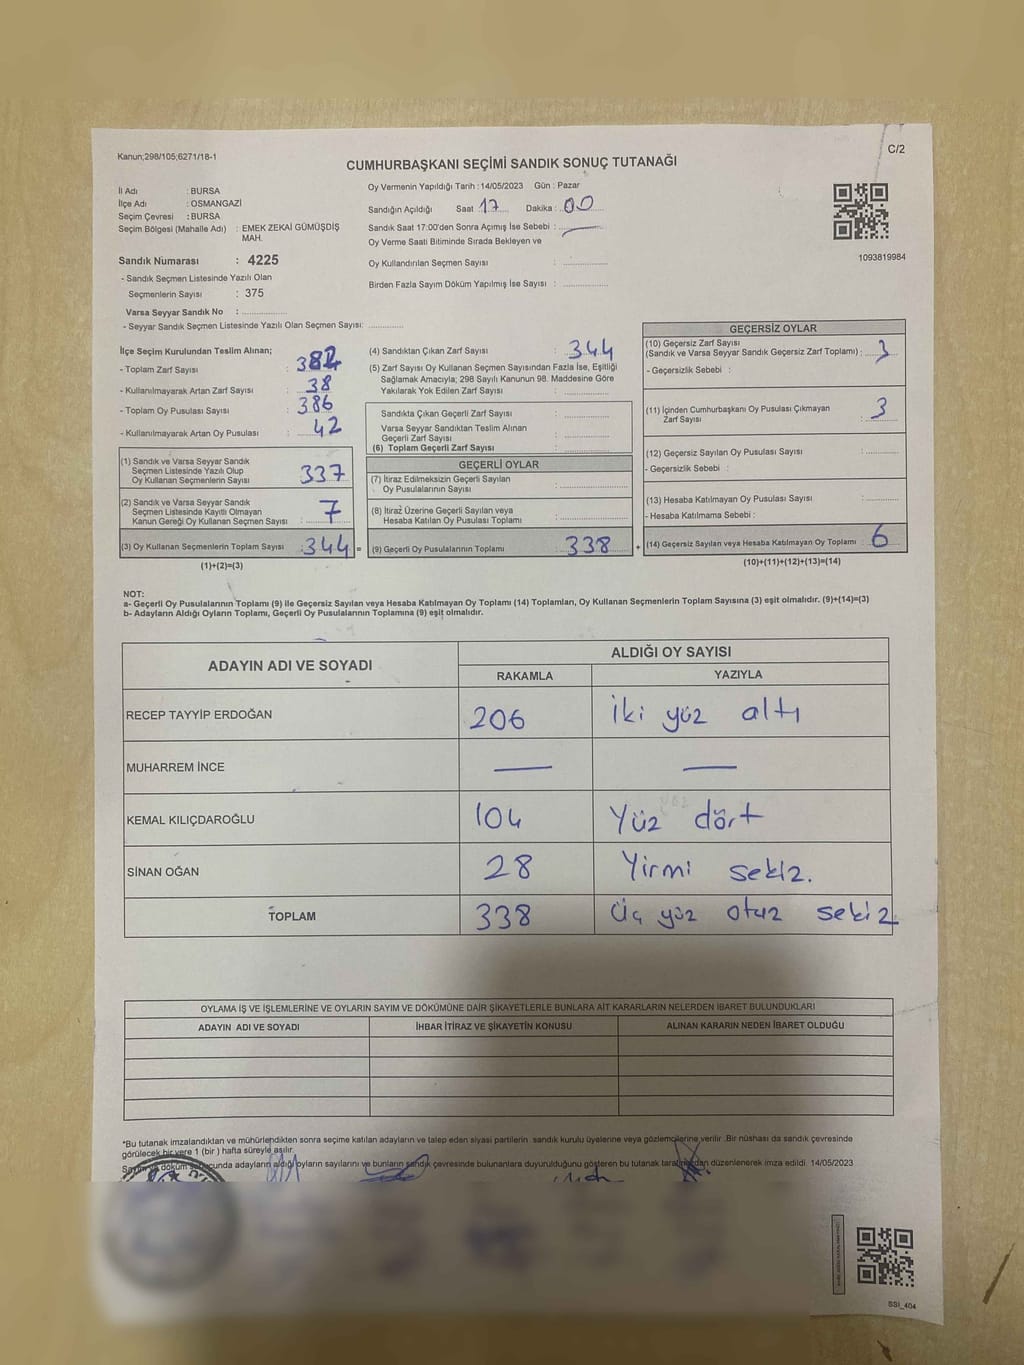 Kanun;298/105;6271/18-1
C/2
CUMHURBAŞKANI SEÇİMİ SANDIK SONUÇ TUTANAĞI
İl Adı : BURSA
İlçe Adı : OSMANGAZİ
Seçim Çevresi : BURSA
Seçim Bölgesi (Mahalle Adı) : EMEK ZEKAİ GÜMÜŞDİŞ
MAH.
Sandık Numarası : 4225
- Sandık Seçmen Listesinde Yazılı Olan
Seçmenlerin Sayısı : 375
Varsa Seyyar Sandık No : ..............
- Seyyar Sandık Seçmen Listesinde Yazılı Olan Seçmen Sayısı: ............
Oy Vermenin Yapıldığı Tarih : 14/05/2023 Gün : Pazar
Sandığın Açıldığı Saat 17 Dakika : 00
Sandık Saat 17:00'den Sonra Açımış İse Sebebi :
Oy Verme Saati Bitiminde Sırada Bekleyen ve
Oy Kullandırılan Seçmen Sayısı : ..............
Birden Fazla Sayım Döküm Yapılmış İse Sayısı : ..............
1093819984
İlçe Seçim Kurulundan Teslim Alınan;
- Toplam Zarf Sayısı : 382
- Kullanılmayarak Artan Zarf Sayısı : 38
- Toplam Oy Pusulası Sayısı : 386
- Kullanılmayarak Artan Oy Pusulası : 42
(1) Sandık ve Varsa Seyyar Sandık
Seçmen Listesinde Yazılı Olup
Oy Kullanan Seçmenlerin Sayısı 337
(2) Sandık ve Varsa Seyyar Sandık
Seçmen Listesinde Kayıtlı Olmayan
Kanun Gereği Oy Kullanan Seçmen Sayısı : 7
(3) Oy Kullanan Seçmenlerin Toplam Sayısı : 344 =
(1)+(2)=(3)
(4) Sandıktan Çıkan Zarf Sayısı : 344
(5) Zarf Sayısı Oy Kullanan Seçmen Sayısından Fazla İse, Eşitliği
Sağlamak Amacıyla; 298 Sayılı Kanunun 98. Maddesine Göre
Yakılarak Yok Edilen Zarf Sayısı : ..............
Sandıkta Çıkan Geçerli Zarf Sayısı : ..............
Varsa Seyyar Sandıktan Teslim Alınan
Geçerli Zarf Sayısı : ..............
(6) Toplam Geçerli Zarf Sayısı : ..............
GEÇERLİ OYLAR
(7) İtiraz Edilmeksizin Geçerli Sayılan
Oy Pusulalarının Sayısı : ..............
(8) İtiraz Üzerine Geçerli Sayılan veya
Hesaba Katılan Oy Pusulası Toplamı : ..............
(9) Geçerli Oy Pusulalarının Toplamı : 338 +
GEÇERSİZ OYLAR
(10) Geçersiz Zarf Sayısı
(Sandık ve Varsa Seyyar Sandık Geçersiz Zarf Toplamı) : 3
- Geçersizlik Sebebi :
(11) İçinden Cumhurbaşkanı Oy Pusulası Çıkmayan
Zarf Sayısı : 3
(12) Geçersiz Sayılan Oy Pusulası Sayısı : ..............
- Geçersizlik Sebebi :
(13) Hesaba Katılmayan Oy Pusulası Sayısı : ..............
- Hesaba Katılmama Sebebi :
(14) Geçersiz Sayılan veya Hesaba Katılmayan Oy Toplamı : 6
(10)+(11)+(12)+(13)=(14)
NOT:
a- Geçerli Oy Pusulalarının Toplamı (9) ile Geçersiz Sayılan veya Hesaba Katılmayan Oy Toplamı (14) Toplamları, Oy Kullanan Seçmenlerin Toplam Sayısına (3) eşit olmalıdır. (9)+(14)=(3)
b- Adayların Aldığı Oyların Toplamı, Geçerli Oy Pusulalarının Toplamına (9) eşit olmalıdır.
ADAYIN ADI VE SOYADI
ALDIĞI OY SAYISI
RAKAMLA YAZIYLA
RECEP TAYYİP ERDOĞAN 206 İki yüz altı
MUHARREM İNCE — —
KEMAL KILIÇDAROĞLU 104 Yüz dört
SİNAN OĞAN 28 Yirmi sekiz.
TOPLAM 338 Üç yüz otuz sekiz
OYLAMA İŞ VE İŞLEMLERİNE VE OYLARIN SAYIM VE DÖKÜMÜNE DAİR ŞİKAYETLERLE BUNLARA AİT KARARLARIN NELERDEN İBARET BULUNDUKLARI
ADAYIN ADI VE SOYADI İHBAR İTİRAZ VE ŞİKAYETİN KONUSU ALINAN KARARIN NEDEN İBARET OLDUĞU
*Bu tutanak imzalandıktan ve mühürlendikten sonra seçime katılan adayların ve talep eden siyasi partilerin sandık kurulu üyelerine veya gözlemcilerine verilir .Bir nüshası da sandık çevresinde
görülecek bir yere 1 (bir ) hafta süreyle asılır.
Sayım ve döküm sonucunda adayların aldığı oyların sayılarını ve bunların sandık çevresinde bulunanlara duyurulduğunu gösteren bu tutanak tarafımızdan düzenlenerek imza edildi. 14/05/2023
SSI_404